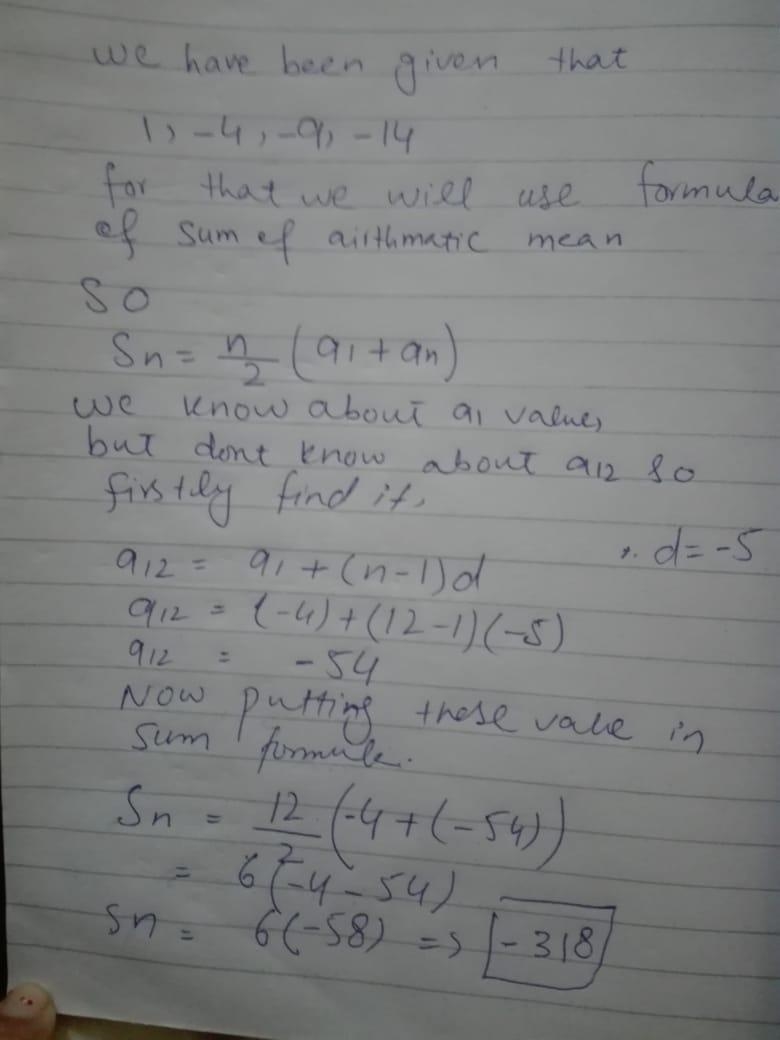 we have been given that
1, -4, -9, -14
for that we will use formula
of sum of airthmatic mean
SO
Sn = n/2 (a1 + an)
we know about a1 value,
but dont know about a12 so
firstly find it.
∵ d = -5
a12 = a1 + (n-1)d
a12 = (-4) + (12-1)(-5)
a12 = -54
Now putting these value in
sum formula.
Sn = 12/2 (-4 + (-54))
= 6(-4 - 54)
Sn = 6(-58) => -318